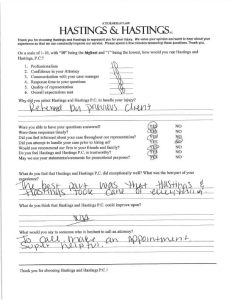 ATTORNEYS AT LAW
HASTINGS & HASTINGS.
Thank you for choosing Hastings and Hastings to represent you for your injury. We value your opinion and want to hear about your
experience so that we can constantly improve our service. Please spend a few minutes answering these questions. Thank you.
On a scale of 1-10, with "10" being the highest and "1" being the lowest, how would you rate Hastings and
Hastings, P.C.?
1. Professionalism
2. Confidence in your Attorney
3. Communication with your case manager
4. Response time to your questions
5. Quality of representation
6. Overall expectations met
Why did you select Hastings and Hastings P.C. to handle your injury?
Referred by previous client
Were you able to have your questions answered? YES NO
Were they responses timely? YES NO
Did you feel informed about your case throughout our representation? YES NO
Did you attempt to handle your case prior to hiring us? YES NO
Would you recommend our firm to your friends and family? YES NO
Do you feel that Hastings and Hastings P.C. is trustworthy? YES NO
May we use your statements/comments for promotional purposes? YES NO
What do you feel that Hastings and Hastings P.C. did exceptionally well? What was the best part of your
experience?
The best part was that Hastings &
Hastings took care of everything
What do you think that Hastings and Hastings P.C. could improve upon?
What would you say to someone who is hesitant to call an attorney?
To call, make an appointment,
super helpful.
Thank you for choosing Hastings and Hastings P.C.